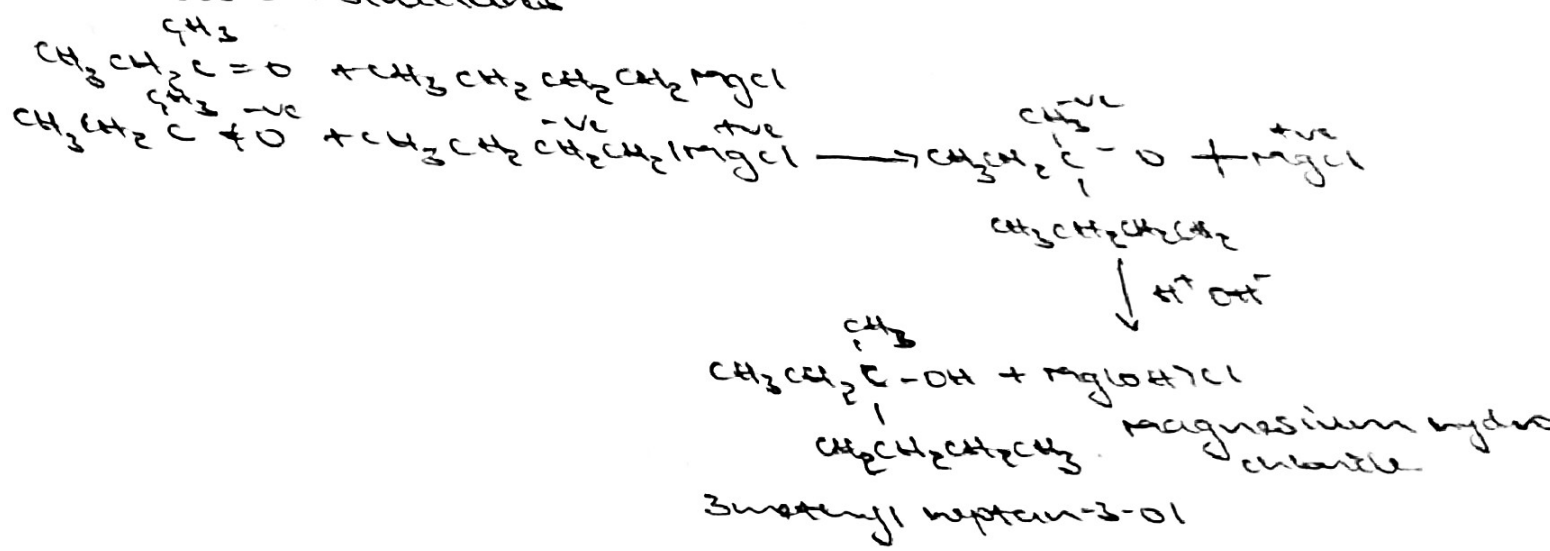 CH3
CH3CH2C=O + CH3CH2CH2CH2MgCl
CH3 -ve -ve +ve
CH3CH2C O + CH3CH2CH2CH2 MgCl → CH3CH2C - O + MgCl
CH3 -ve +ve
CH3CH2CH2CH2
↓ H+ OH-
CH3
CH3CH2C-OH + Mg(OH)Cl
CH2CH2CH2CH3 Magnesium hydro
chloride
3 methyl heptan-3-ol